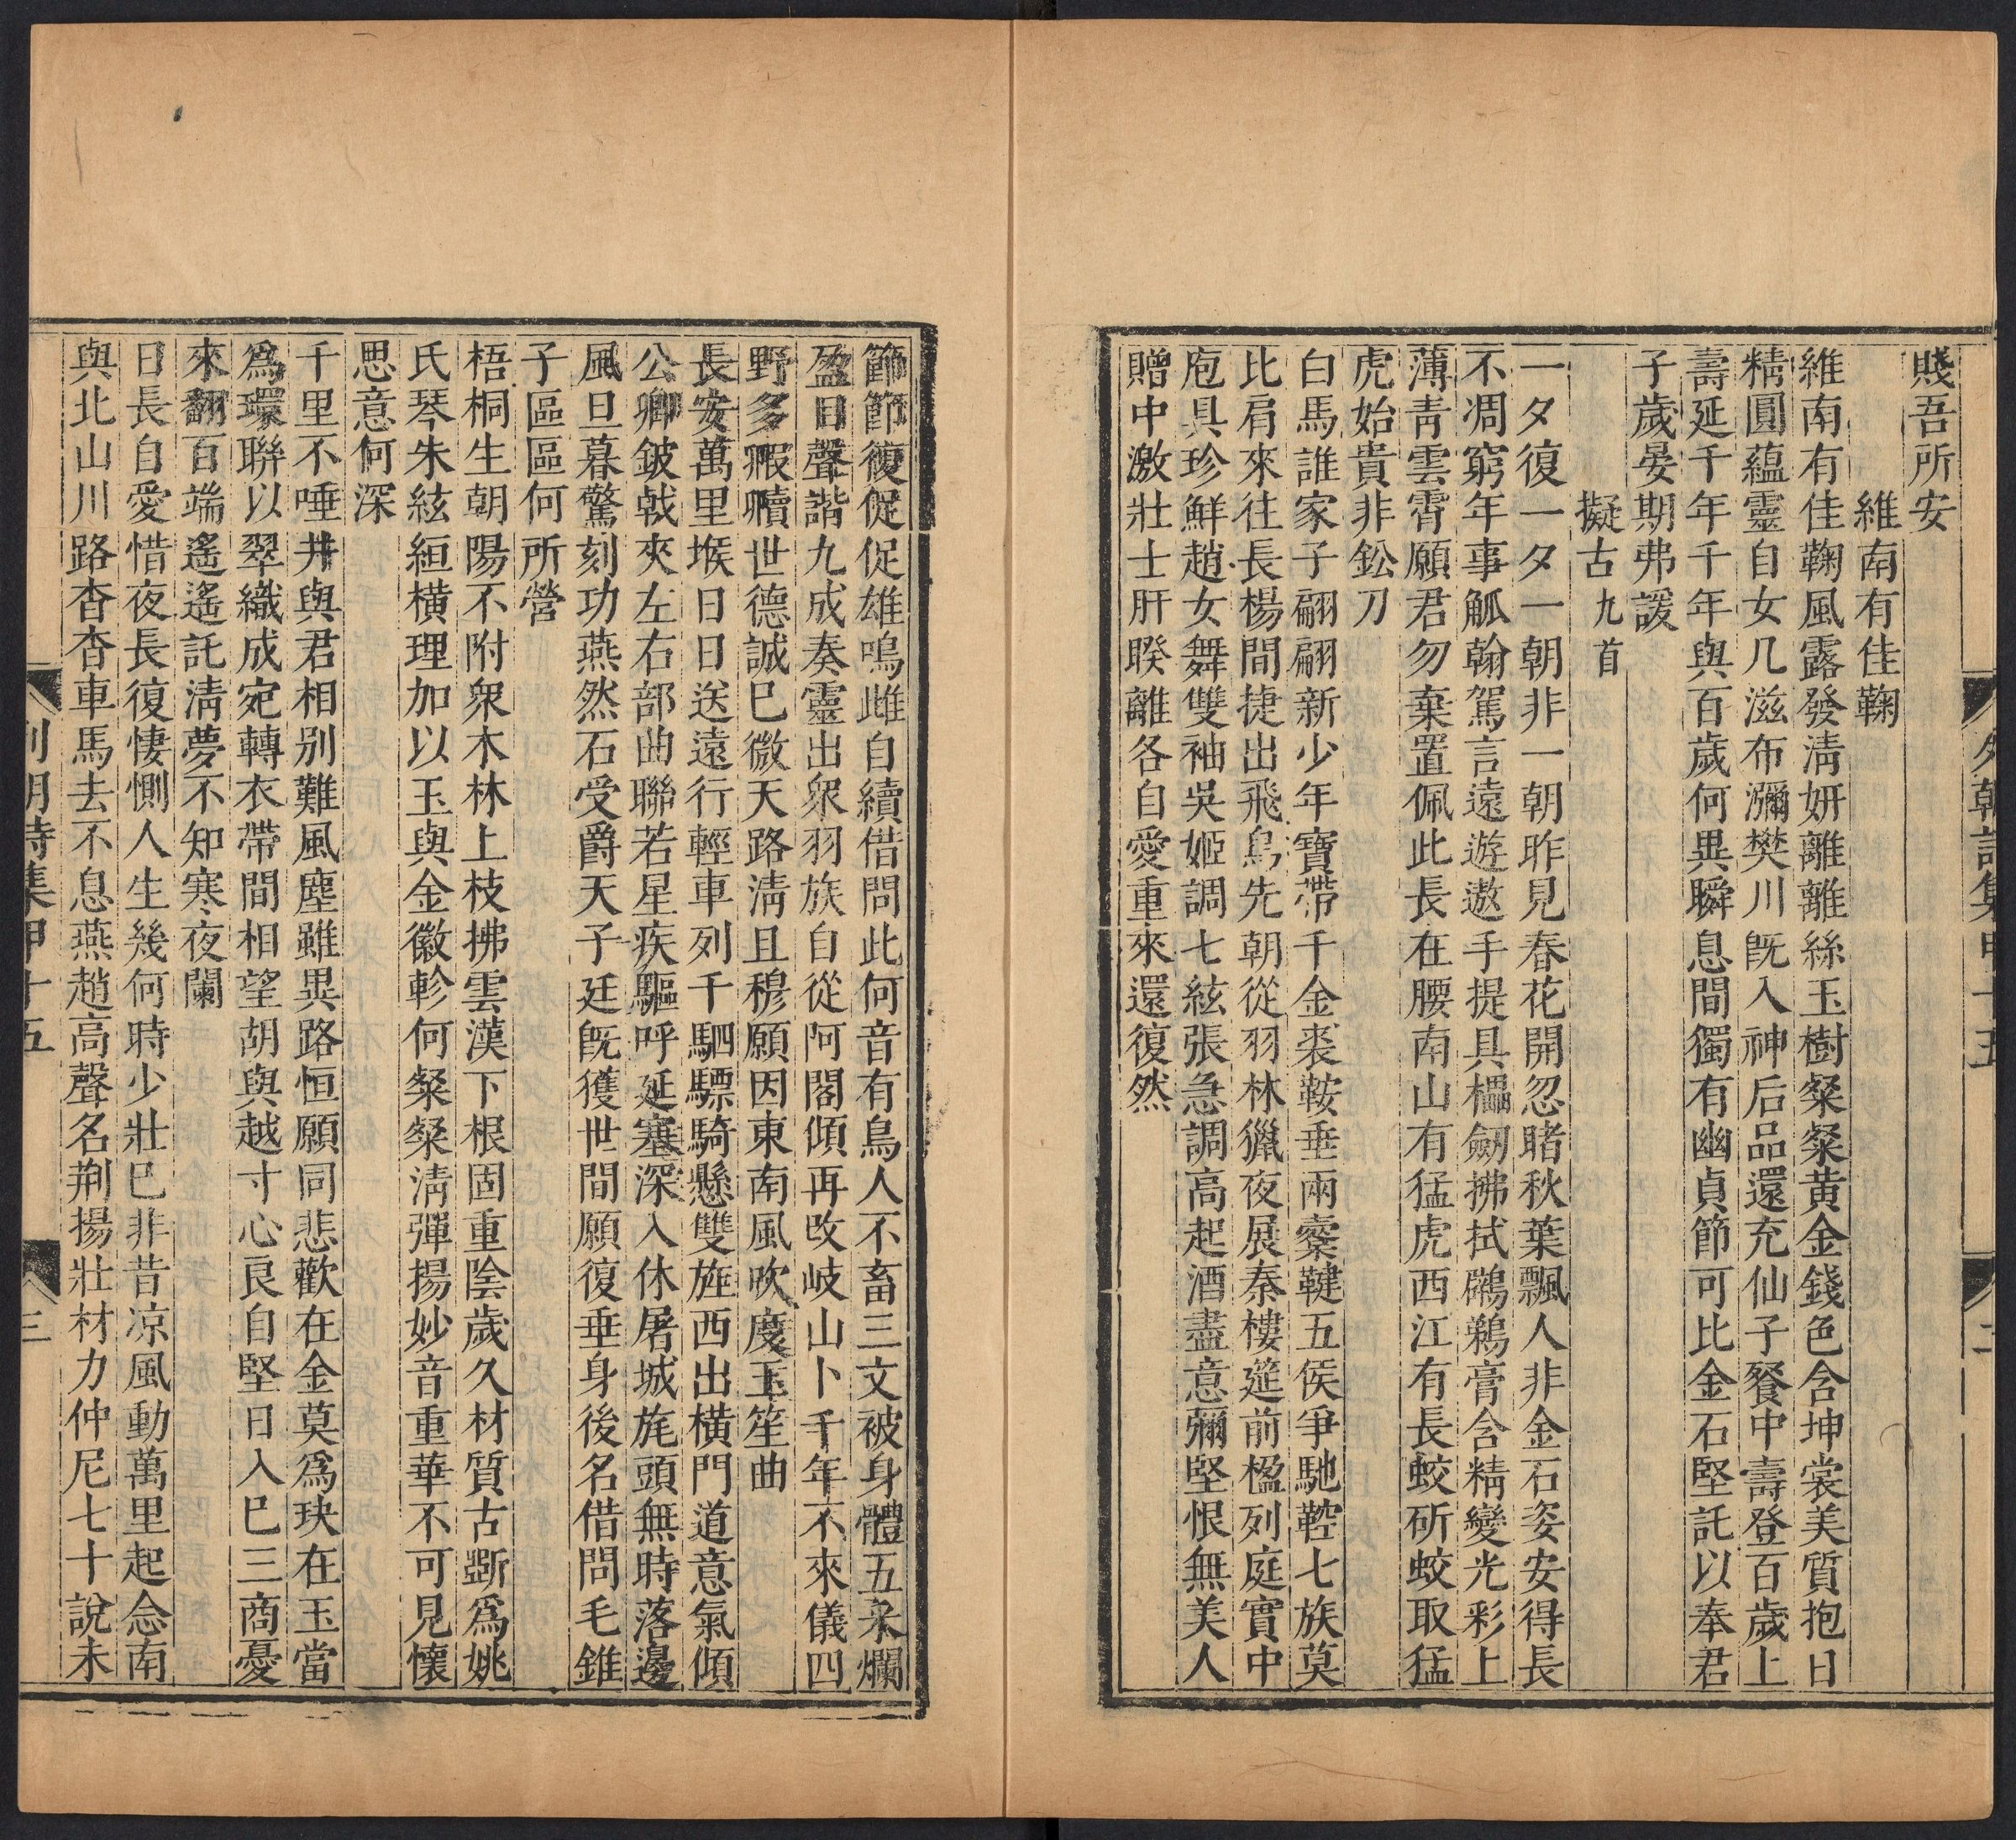 賤吾所安
維南有佳鞠
維南有佳鞠風露發淸妍離離絲玉樹粲粲黄金錢色含坤裳美質抱日
精圓蘊靈自女几滋布瀰樊川旣入神后品還充仙子餐中壽登百歲上
壽延千年千年與百歲何異瞬息間獨有幽貞節可比金石堅託以奉君
子歲晏期弗諼
擬古九首
一夕復一夕一朝非一朝昨見春花開忽睹秋葉飄人非金石姿安得長
不凋窮年事觚翰駕言遠遊遨手提具櫑劒拂拭鷿鵜膏含精變光彩上
薄靑雲霄願君勿棄置佩此長在腰南山有猛虎西江有長蛟斫蛟取猛
虎始貴非鈆刀
白馬誰家子翩翩新少年寶帶千金裘鞍垂兩櫜鞬五侯爭馳鞚七族莫
比肩來往長楊間捷出飛鳥先朝從羽林獵夜展秦樓筵前楹列庭實中
庖具珍鮮趙女舞雙袖吳姬調七絃張急調高起酒盡意彌堅恨無美人
贈中激壯士肝睽離各自愛重來還復然
節節復促促雄鳴雌自續借問此何音有鳥人不畜三文被身體五采爛
盈目聲諧九成奏靈出衆羽族自從阿閣傾再改岐山卜千年不來儀四
野多瘕殰世德誠巳微天路淸且穆願因東南風吹度玉笙曲
長安萬里堠日日送遠行輕車列千駟驃騎懸雙旌西出橫門道意氣傾
公卿鈹戟夾左右部曲聯若星疾驅呼延塞深入休屠城旄頭無時落邊
風旦暮驚刻功燕然石受爵天子廷旣獲世間願復垂身後名借問毛錐
子區區何所營
梧桐生朝陽不附衆木林上枝拂雲漢下根固重陰歲久材質古斲爲姚
氏琴朱絃絙橫理加以玉與金徽軫何粲粲淸彈揚妙音重華不可見懷
思意何深
千里不唾井與君相别難風塵雖異路恒願同悲歡在金莫爲玦在玉當
爲環聯以翠織成宛轉衣帶間相望胡與越寸心良自堅日入巳三商憂
來翻百端遙遙託淸夢不知寒夜闌
日長自愛惜夜長復悽惻人生幾何時少壯巳非昔凉風動萬里起念南
與北山川路杳杳車馬去不息燕趙高聲名荆揚壯材力仲尼七十說未
列朝詩集甲十五
三